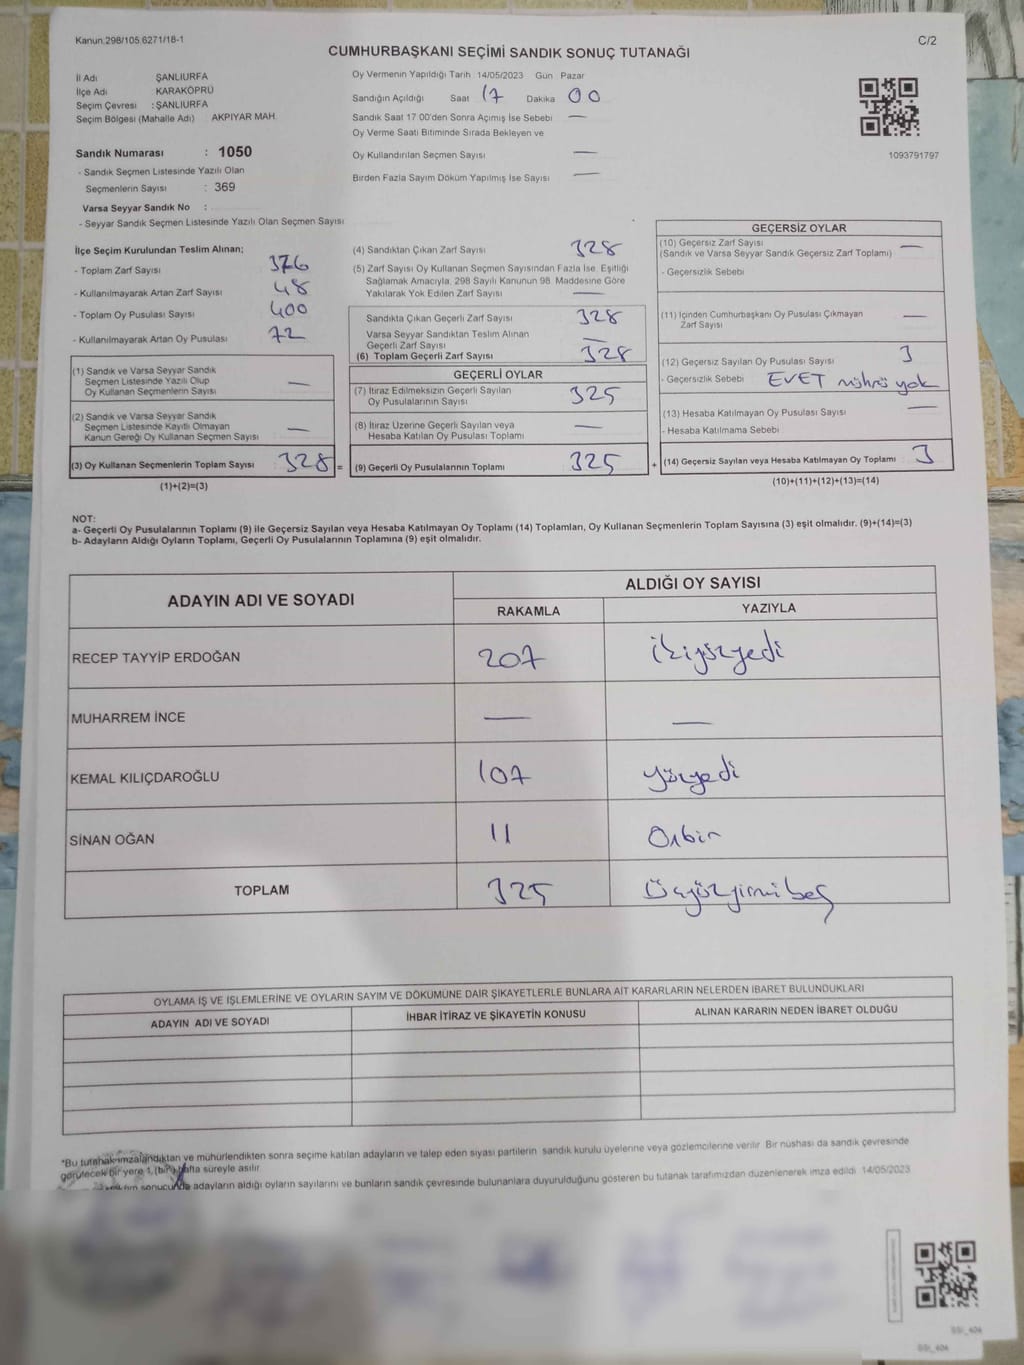 Kanun.298/105.6271/18-1
C/2
CUMHURBAŞKANI SEÇİMİ SANDIK SONUÇ TUTANAĞI
İl Adı ŞANLIURFA
İlçe Adı KARAKÖPRÜ
Seçim Çevresi : ŞANLIURFA
Seçim Bölgesi (Mahalle Adı) AKPIYAR MAH.
Sandık Numarası : 1050
- Sandık Seçmen Listesinde Yazılı Olan
Seçmenlerin Sayısı : 369
Varsa Seyyar Sandık No :
- Seyyar Sandık Seçmen Listesinde Yazılı Olan Seçmen Sayısı
Oy Vermenin Yapıldığı Tarih 14/05/2023 Gün Pazar
Sandığın Açıldığı Saat 17 Dakika 00
Sandık Saat 17.00'den Sonra Açımış İse Sebebi —
Oy Verme Saati Bitiminde Sırada Bekleyen ve
Oy Kullandırılan Seçmen Sayısı —
Birden Fazla Sayım Döküm Yapılmış İse Sayısı —
1093791797
İlçe Seçim Kurulundan Teslim Alınan;
- Toplam Zarf Sayısı 376
- Kullanılmayarak Artan Zarf Sayısı 48
- Toplam Oy Pusulası Sayısı 400
- Kullanılmayarak Artan Oy Pusulası 72
(1) Sandık ve Varsa Seyyar Sandık
Seçmen Listesinde Yazılı Olup
Oy Kullanan Seçmenlerin Sayısı —
(2) Sandık ve Varsa Seyyar Sandık
Seçmen Listesinde Kayıtlı Olmayan
Kanun Gereği Oy Kullanan Seçmen Sayısı —
(3) Oy Kullanan Seçmenlerin Toplam Sayısı 328 =
(1)+(2)=(3)
(4) Sandıktan Çıkan Zarf Sayısı 328
(5) Zarf Sayısı Oy Kullanan Seçmen Sayısından Fazla İse, Eşitliği
Sağlamak Amacıyla, 298 Sayılı Kanunun 98. Maddesine Göre
Yakılarak Yok Edilen Zarf Sayısı —
Sandıkta Çıkan Geçerli Zarf Sayısı 328
Varsa Seyyar Sandıktan Teslim Alınan
Geçerli Zarf Sayısı —
(6) Toplam Geçerli Zarf Sayısı 328
GEÇERLİ OYLAR
(7) İtiraz Edilmeksizin Geçerli Sayılan
Oy Pusulalarının Sayısı 325
(8) İtiraz Üzerine Geçerli Sayılan veya
Hesaba Katılan Oy Pusulası Toplamı —
(9) Geçerli Oy Pusulalarının Toplamı 325 +
GEÇERSİZ OYLAR
(10) Geçersiz Zarf Sayısı —
(Sandık ve Varsa Seyyar Sandık Geçersiz Zarf Toplamı)
- Geçersizlik Sebebi
(11) İçinden Cumhurbaşkanı Oy Pusulası Çıkmayan
Zarf Sayısı —
(12) Geçersiz Sayılan Oy Pusulası Sayısı 3
- Geçersizlik Sebebi EVET mührü yok
(13) Hesaba Katılmayan Oy Pusulası Sayısı —
- Hesaba Katılmama Sebebi
(14) Geçersiz Sayılan veya Hesaba Katılmayan Oy Toplamı 3
(10)+(11)+(12)+(13)=(14)
NOT:
a- Geçerli Oy Pusulalarının Toplamı (9) ile Geçersiz Sayılan veya Hesaba Katılmayan Oy Toplamı (14) Toplamları, Oy Kullanan Seçmenlerin Toplam Sayısına (3) eşit olmalıdır. (9)+(14)=(3)
b- Adayların Aldığı Oyların Toplamı, Geçerli Oy Pusulalarının Toplamına (9) eşit olmalıdır.
ADAYIN ADI VE SOYADI
ALDIĞI OY SAYISI
RAKAMLA YAZIYLA
RECEP TAYYİP ERDOĞAN 207 ikiyüzyedi
MUHARREM İNCE — —
KEMAL KILIÇDAROĞLU 107 yüzyedi
SİNAN OĞAN 11 Onbir
TOPLAM 325 Üçyüzyirmibeş
OYLAMA İŞ VE İŞLEMLERİNE VE OYLARIN SAYIM VE DÖKÜMÜNE DAİR ŞİKAYETLERLE BUNLARA AİT KARARLARIN NELERDEN İBARET BULUNDUKLARI
ADAYIN ADI VE SOYADI İHBAR İTİRAZ VE ŞİKAYETİN KONUSU ALINAN KARARIN NEDEN İBARET OLDUĞU
*Bu tutanak imzalandıktan ve mühürlendikten sonra seçime katılan adayların ve talep eden siyasi partilerin sandık kurulu üyelerine veya gözlemcilerine verilir. Bir nüshası da sandık çevresinde
görülecek bir yere 1 (bir) hafta süreyle asılır.
sonucunda adayların aldığı oyların sayılarını ve bunların sandık çevresinde bulunanlara duyurulduğunu gösteren bu tutanak tarafımızdan düzenlenerek imza edildi. 14/05/2023